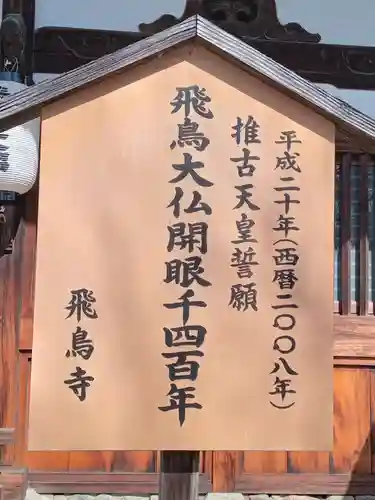 平成二十年(西暦二〇〇八年)
推古天皇誓願
飛鳥大仏開眼千四百年
飛鳥寺